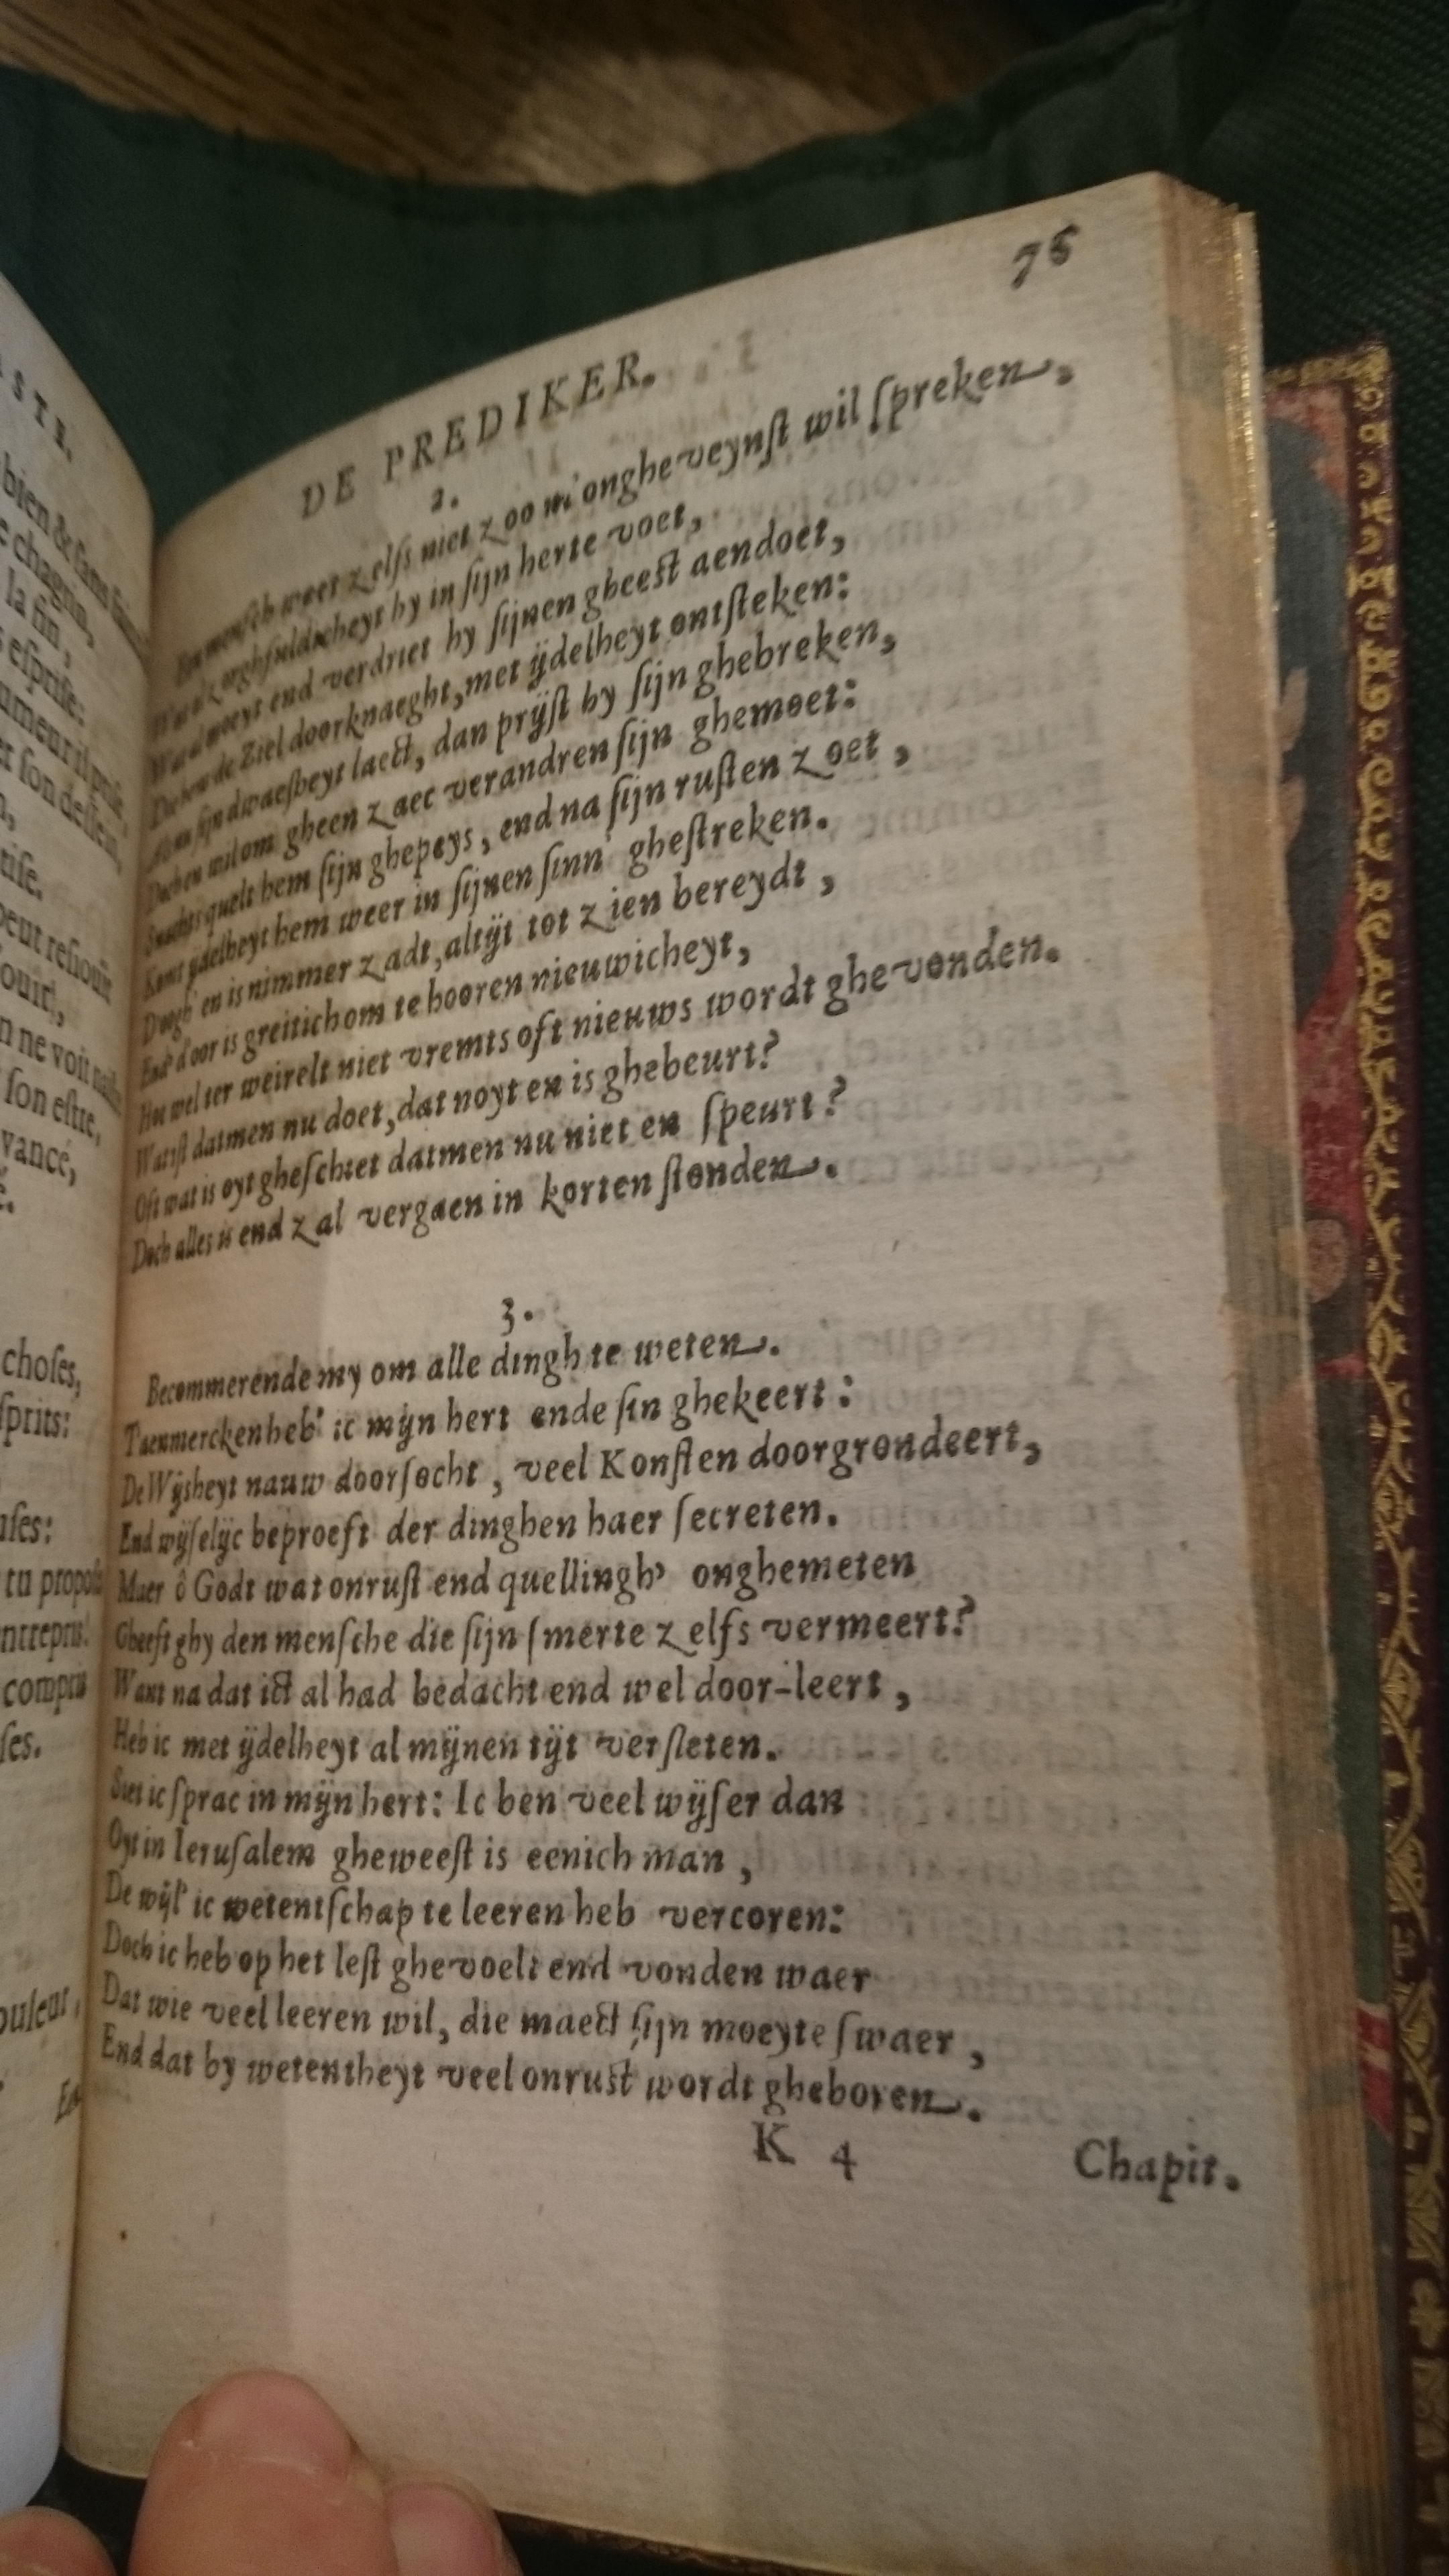 STE.
bien & sans
e chagrin,
la fin,
esprise:
umeur il
er son dessein,
tise.
peut resiouir
ouir,
n ne voit
son estre,
vancé,
choses,
sprits:
ses:
tu propos
compris
ses.
oulent,
75
DE PREDIKER.
2.
Een mensch weet zelfs niet zoo m'ongheveynst wil spreken.
Wat al zorghfuldicheyt hy in sijn herte voet,
Wat al moeyt end verdriet hy sijnen gheest aendoet,
de Ziel doorknaeght, met ijdelheyt ontsteken:
sijn dwaesheyt laect, dan prijst hy sijn ghebreken,
om gheen zaec verandren sijn ghemoet:
Snachts quelt hem sijn ghepeys, end na sijn rusten zoet,
Komt ydelheyt hem weer in sijnen sinn' ghestreken.
D'oogh' en is nimmer zadt, altijt tot zien bereydt,
End' d'oor is greitich om te hooren nieuwicheyt,
Hoe wel ter weirelt niet vremts oft nieuws wordt ghevonden.
Wat ist datmen nu doet, dat noyt en is ghebeurt?
Oft wat is oyt gheschiet datmen nu niet en speurt?
Doch alles is end zal vergaen in korten stonden.
3.
Becommerende my om alle dingh te weten.
T'aenmercken heb' ic mijn hert ende sin ghekeert:
De Wijsheyt nauw doorsocht, veel Konsten doorgrondeert,
End wijselijc beproeft der dinghen haer secreten.
Maer ô Godt wat onrust end quellingh' onghemeten
Gheeft ghy den mensche die sijn smerte zelfs vermeert?
Want na dat ict al had bedacht end wel door-leert,
Heb ic met ijdelheyt al mijnen tijt versleten.
Siet ic sprac in mijn hert: Ic ben veel wijser dan
Oyt in Ierusalem gheweest is eenich man,
De wijl' ic wetentschap te leeren heb vercoren:
Doch ic heb op het lest ghevoelt end vonden waer
Dat wie veel leeren wil, die maect sijn moeyte swaer,
End dat by wetentheyt veel onrust wordt gheboren.
K 4
Chapit.